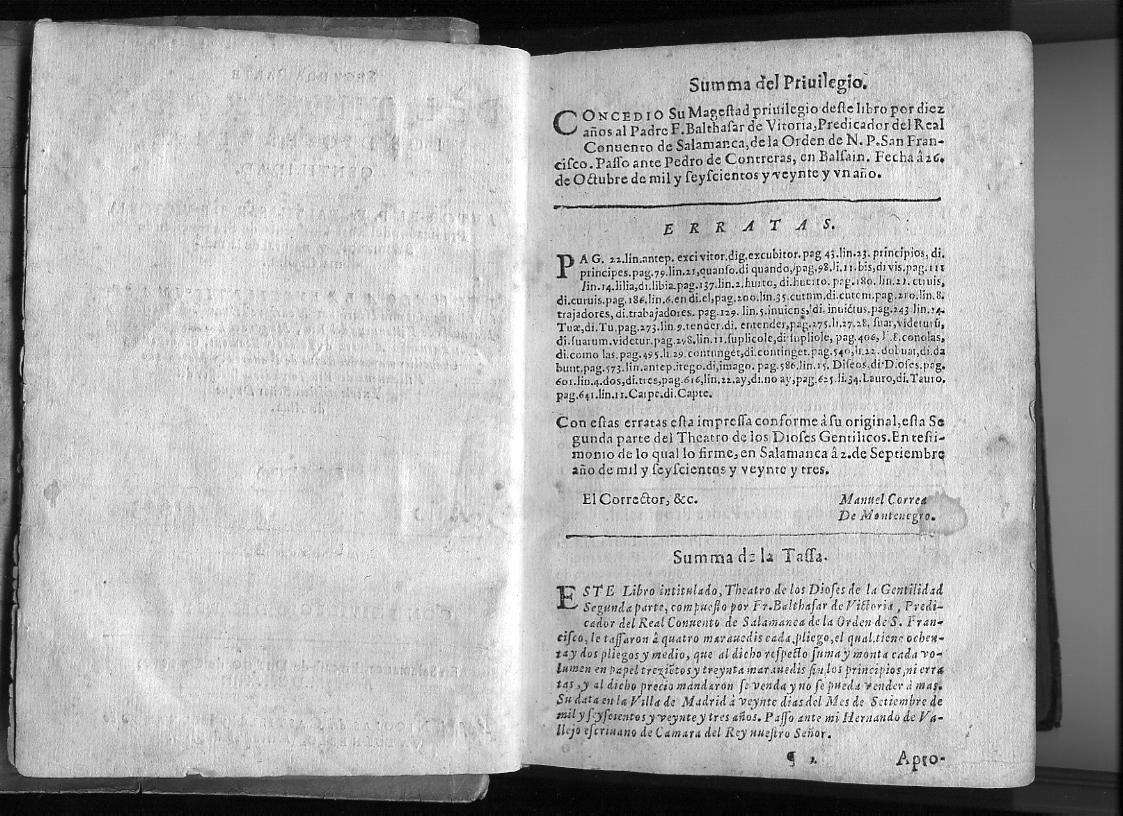 Summa del Priuilegio.
CONCEDIO Su Mageſtad priuilegio deſte libro por diez
años al Padre F. Balthaſar de Vitoria, Predicador del Real
Conuento de Salamanca, de la Orden de N. P. San Fran-
ciſco. Paſſo ante Pedro de Contreras, en Balſain. Fecha â 26.
de Octubre de mil y ſeyſcientos y veynte y vn año.
ERRATAS.
PAG. 22.lin.antep. excivitor, dig.excubitor. pag 43.lin.23. principios, di.
principes. pag.79.lin.21, quanſo. di quando, pag, 98. li. 11. bis, di vis, pag. 111
lin. 14. lilia, di. libia. pag. 137. lin. 2. hurto, di. huerto. pag. 180. lin. 21. curuis,
di. curuis. pag. 186. lin, 6. en di. el, pag. 200. lin. 35. cutum. di. cutem. pag. 210. lin. 8.
trajadores, di. trabajadores. pag. 129. lin. 5. inuicns, di. inuictus. pag. 243 lin. 24.
Tuæ, di. Tu, pag. 273. lin 9. tender. di. entender, pag. 275. li. 27. 28. ſuar, videturſi,
di. ſuarum. videtur. pag. 298. lin. 11. ſuplicole, di ſupliole, pag. 406, 8. conolas,
di. como las. pag. 495. li. 29. contunget, di. continget. pag. 540, li. 22. dobuat, di. da
bunt, pag. 573. lin. antep. itego. di, imago. pag. 586. lin. 15. Diſeos, di. Dioſes. pag.
601. lin. 4. dos, di. tres, pag. 616, lin, 22. ay, di. no ay, pag. 625. li. 34. Lauro, di. Tauro.
pag. 641. lin. 11. Carpe. di. Capte.
Con eſtas erratas eſta impreſſa conforme á ſu original, eſta Se
gunda parte del Theatro de los Dioſes Gentilicos. En teſti-
monio de lo qual lo firme, en Salamanca â 2. de Septiembre
año de mil y ſeyſcientos y veynte y tres.
El Corrector, &c. Manuel Correa
De Montenegro.
Summa de la Taſſa.
ESTE Libro intitulado, Theatro de los Dioſes de la Gentilidad
Segunda parte, compueſto por Fr. Balthaſar de Victoria, Predi-
cador del Real Conuento de Salamanca de la Orden de S. Fran-
ciſco, le taſſaron â quatro marauedis cada pliego, el qual tiene ochen-
ta y dos pliegos y medio, que al dicho reſpecto ſuma y monta cada vo-
lumen en papel trezietos y treynta marauedis ſin los principios, ni erra
tas, y al dicho precio mandaron ſe venda y no ſe pueda vender â mas.
Su data en la Villa de Madrid â veynte dias del Mes de Setiembre de
mil y ſeyſcientos y veynte y tres años. Paſſo ante mi Hernando de Va-
llejo eſcriuano de Camara del Rey nueſtro Señor.
¶ 2. Apro-